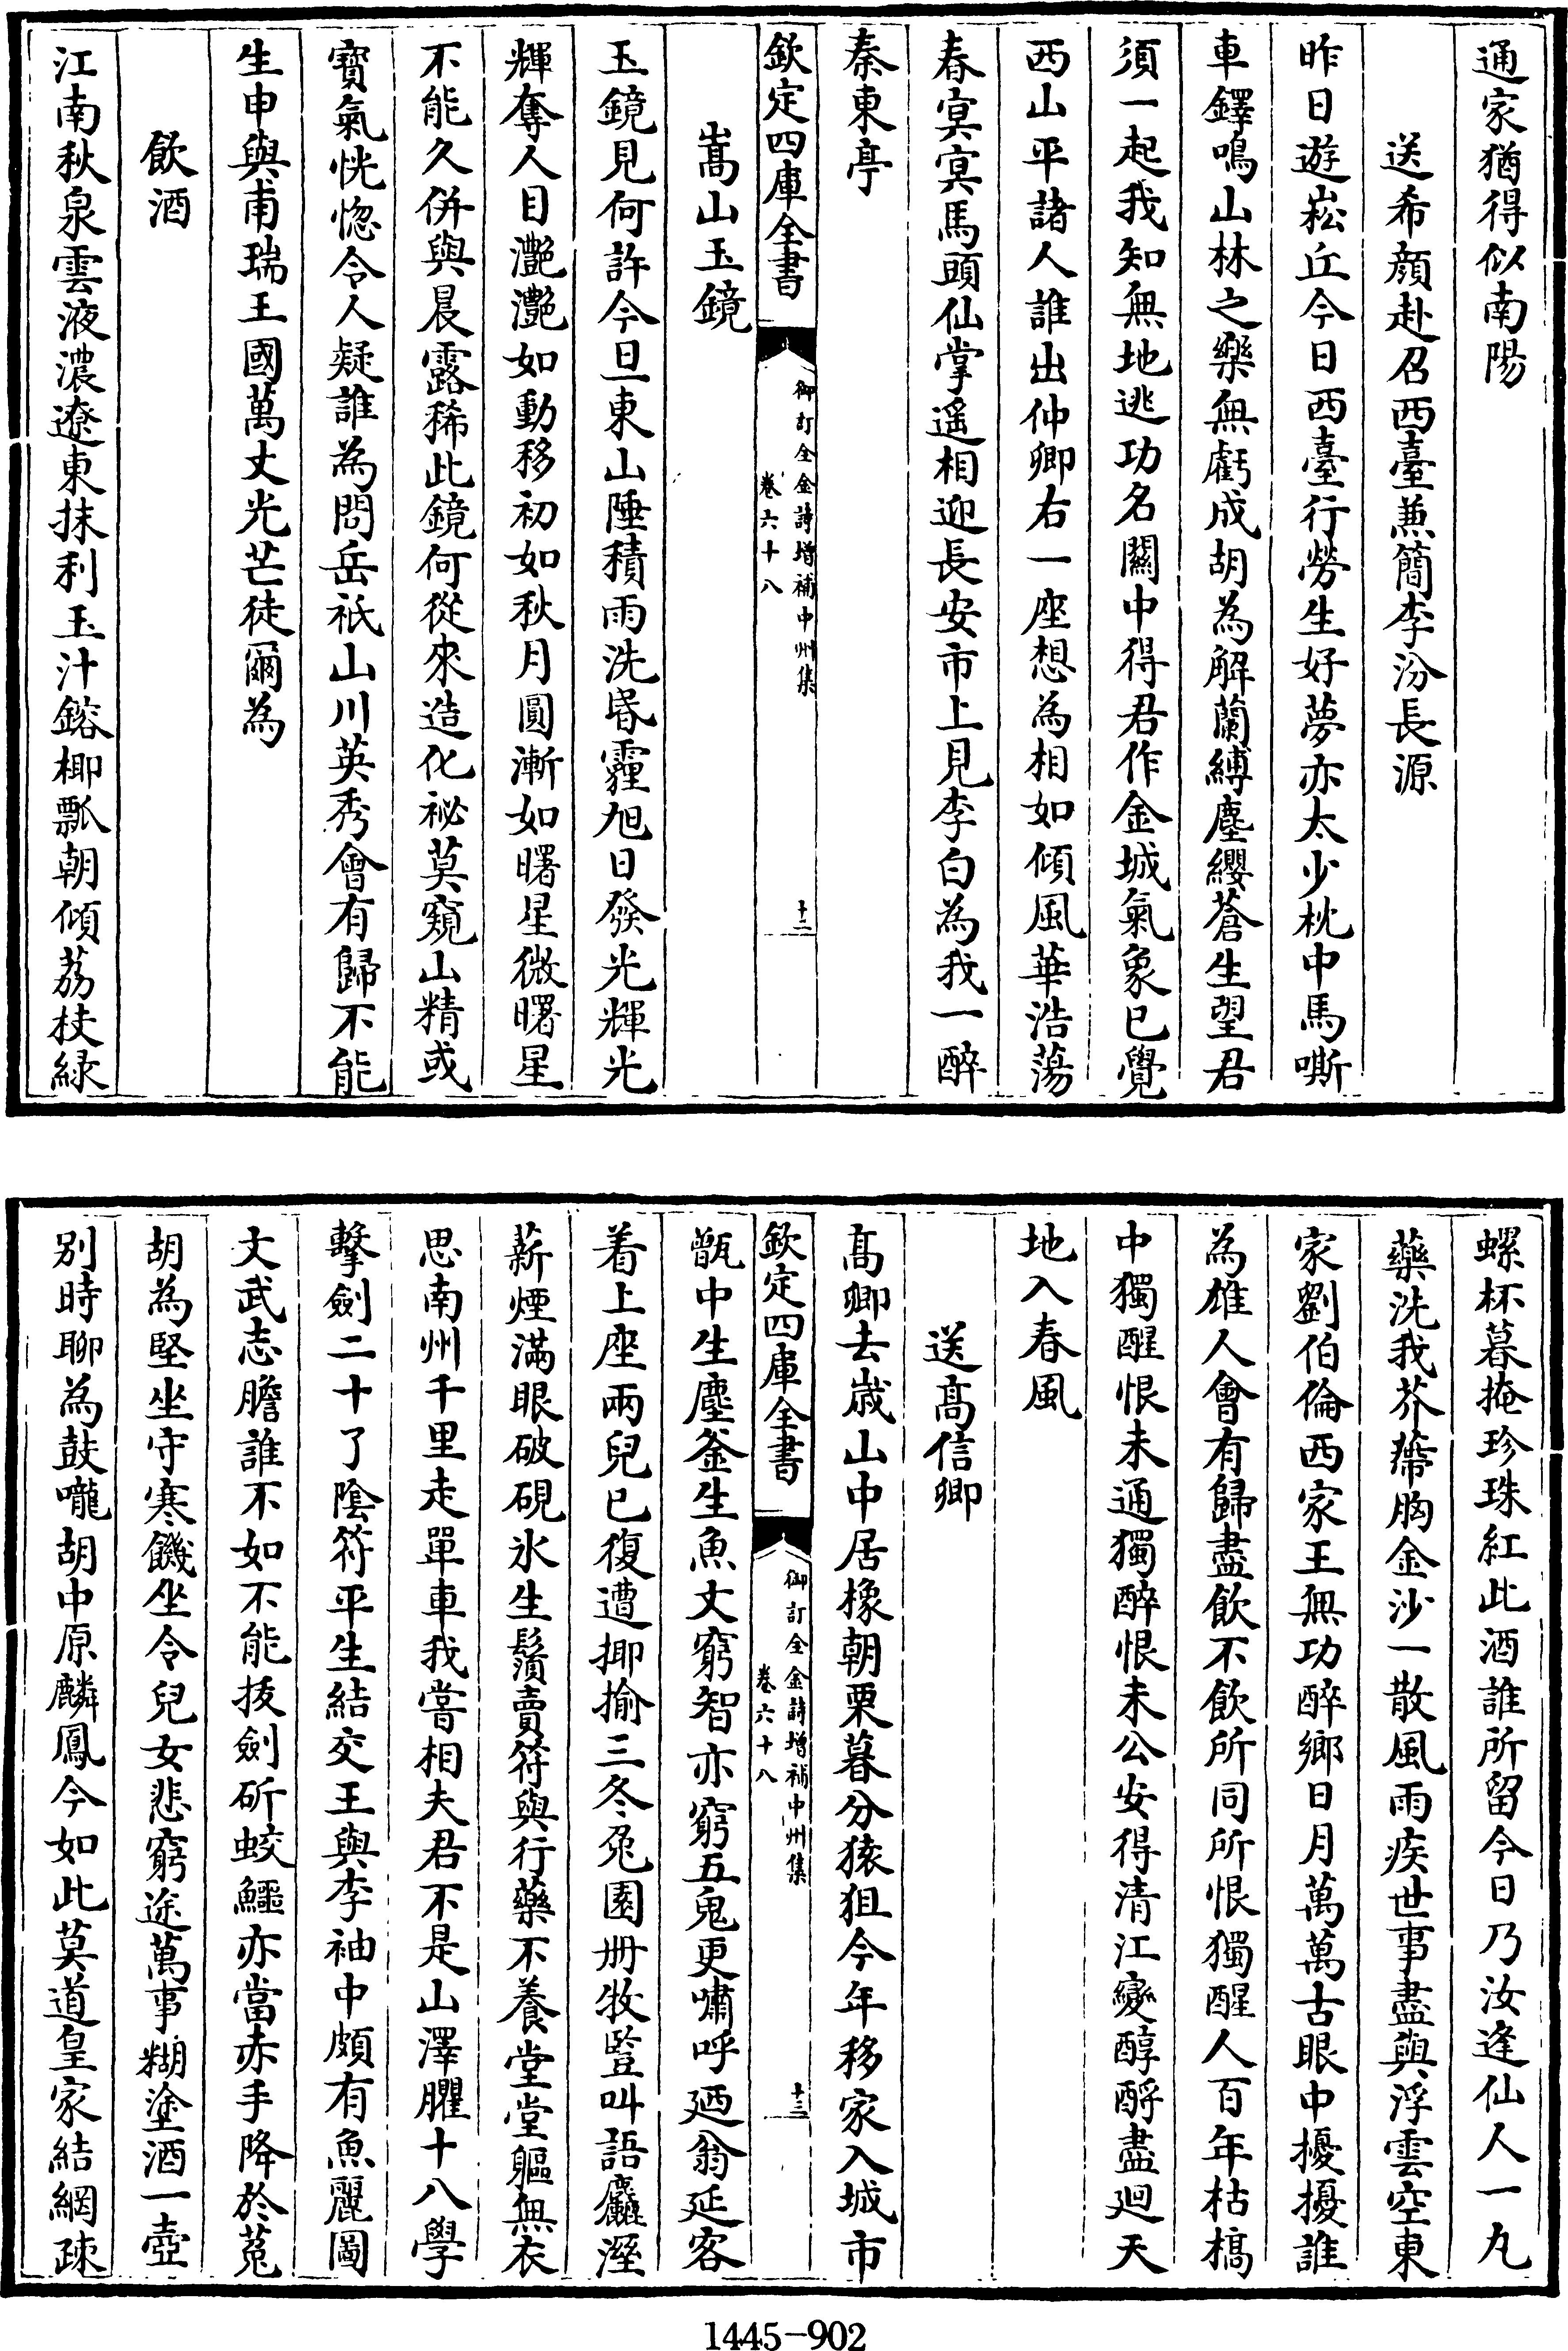 通家猶得似南陽
送希顔赴召西臺兼簡李汾長源
昨日遊崧丘今日西臺行勞生好夢亦太少枕中馬嘶
車鐸鳴山林之樂無虧成胡為解蘭縛塵纓蒼生望君
須一起我知無地逃功名關中得君作金城氣象已覺
西山平諸人誰出仲卿右一座想為相如傾風華浩蕩
春㝠㝠馬頭仙掌遥相迎長安市上見李白為我一醉
秦東亭
欽定四庫全書
御訂全金詩增補中州集
卷六十八
十二
嵩山玉鏡
玉鏡見何許今旦東山陲積雨洗昏霾旭日發光輝光
輝奪人目灔灔如動移初如秋月圓漸如曙星微曙星
不能久併與晨露稀此鏡何從來造化祕莫窺山精或
寳氣恍惚令人疑誰為問岳祇山川英秀會有歸不能
生申與甫瑞王國萬丈光芒徒爾為
飲酒
江南秋泉雲液濃遼東抹利玉汁鎔椰瓢朝傾荔枝綠
螺杯暮掩珍珠紅此酒誰所留今日乃汝逢仙人一丸
藥洗我芥蔕胸金沙一散風雨疾世事盡與浮雲空東
家劉伯倫西家王無功醉鄉日月萬萬古眼中擾擾誰
為雄人會有歸盡飲不飲所同所恨獨醒人百年枯槁
中獨醒恨未通獨醉恨未公安得清江變醇酹盡迴天
地入春風
送髙信卿
髙卿去歲山中居橡朝栗暮分猿狙今年移家入城市
甑中生塵釜生魚丈窮智亦窮五鬼更嘯呼廼翁延客
着上座兩兒已復遭揶揄三冬兔園册牧豎叫語麤澀
薪煙滿眼破硯氷生鬚賣符與行藥不養堂堂軀無衣
思南州千里走單車我嘗相夫君不是山澤臞十八學
擊劍二十了陰符平生結交王與李袖中頗有魚麗圖
文武志膽誰不如不能拔劍斫蛟鱷亦當赤手降於菟
胡為堅坐守寒饑坐令兒女悲窮途萬事糊塗酒一壺
别時聊為鼓嚨胡中原麟鳳今如此莫道皇家結網疎
欽定四庫全書
御訂全金詩增補中州集
卷六十八
十三
1445-902